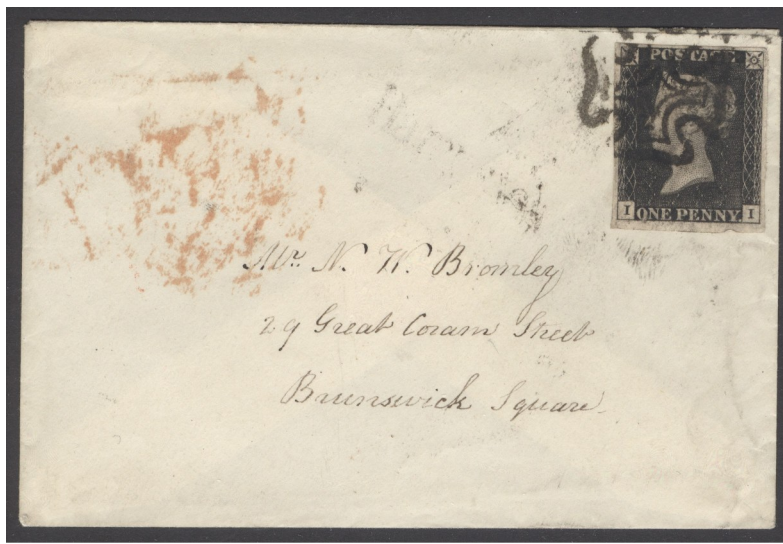 POSTAGE
I ONE PENNY I
Mr. N. W. Bromley
29 Great Coram Street
Brunswick Square